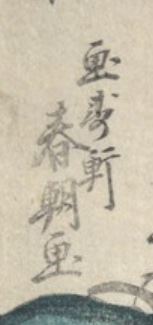 画寿軒
春朝画